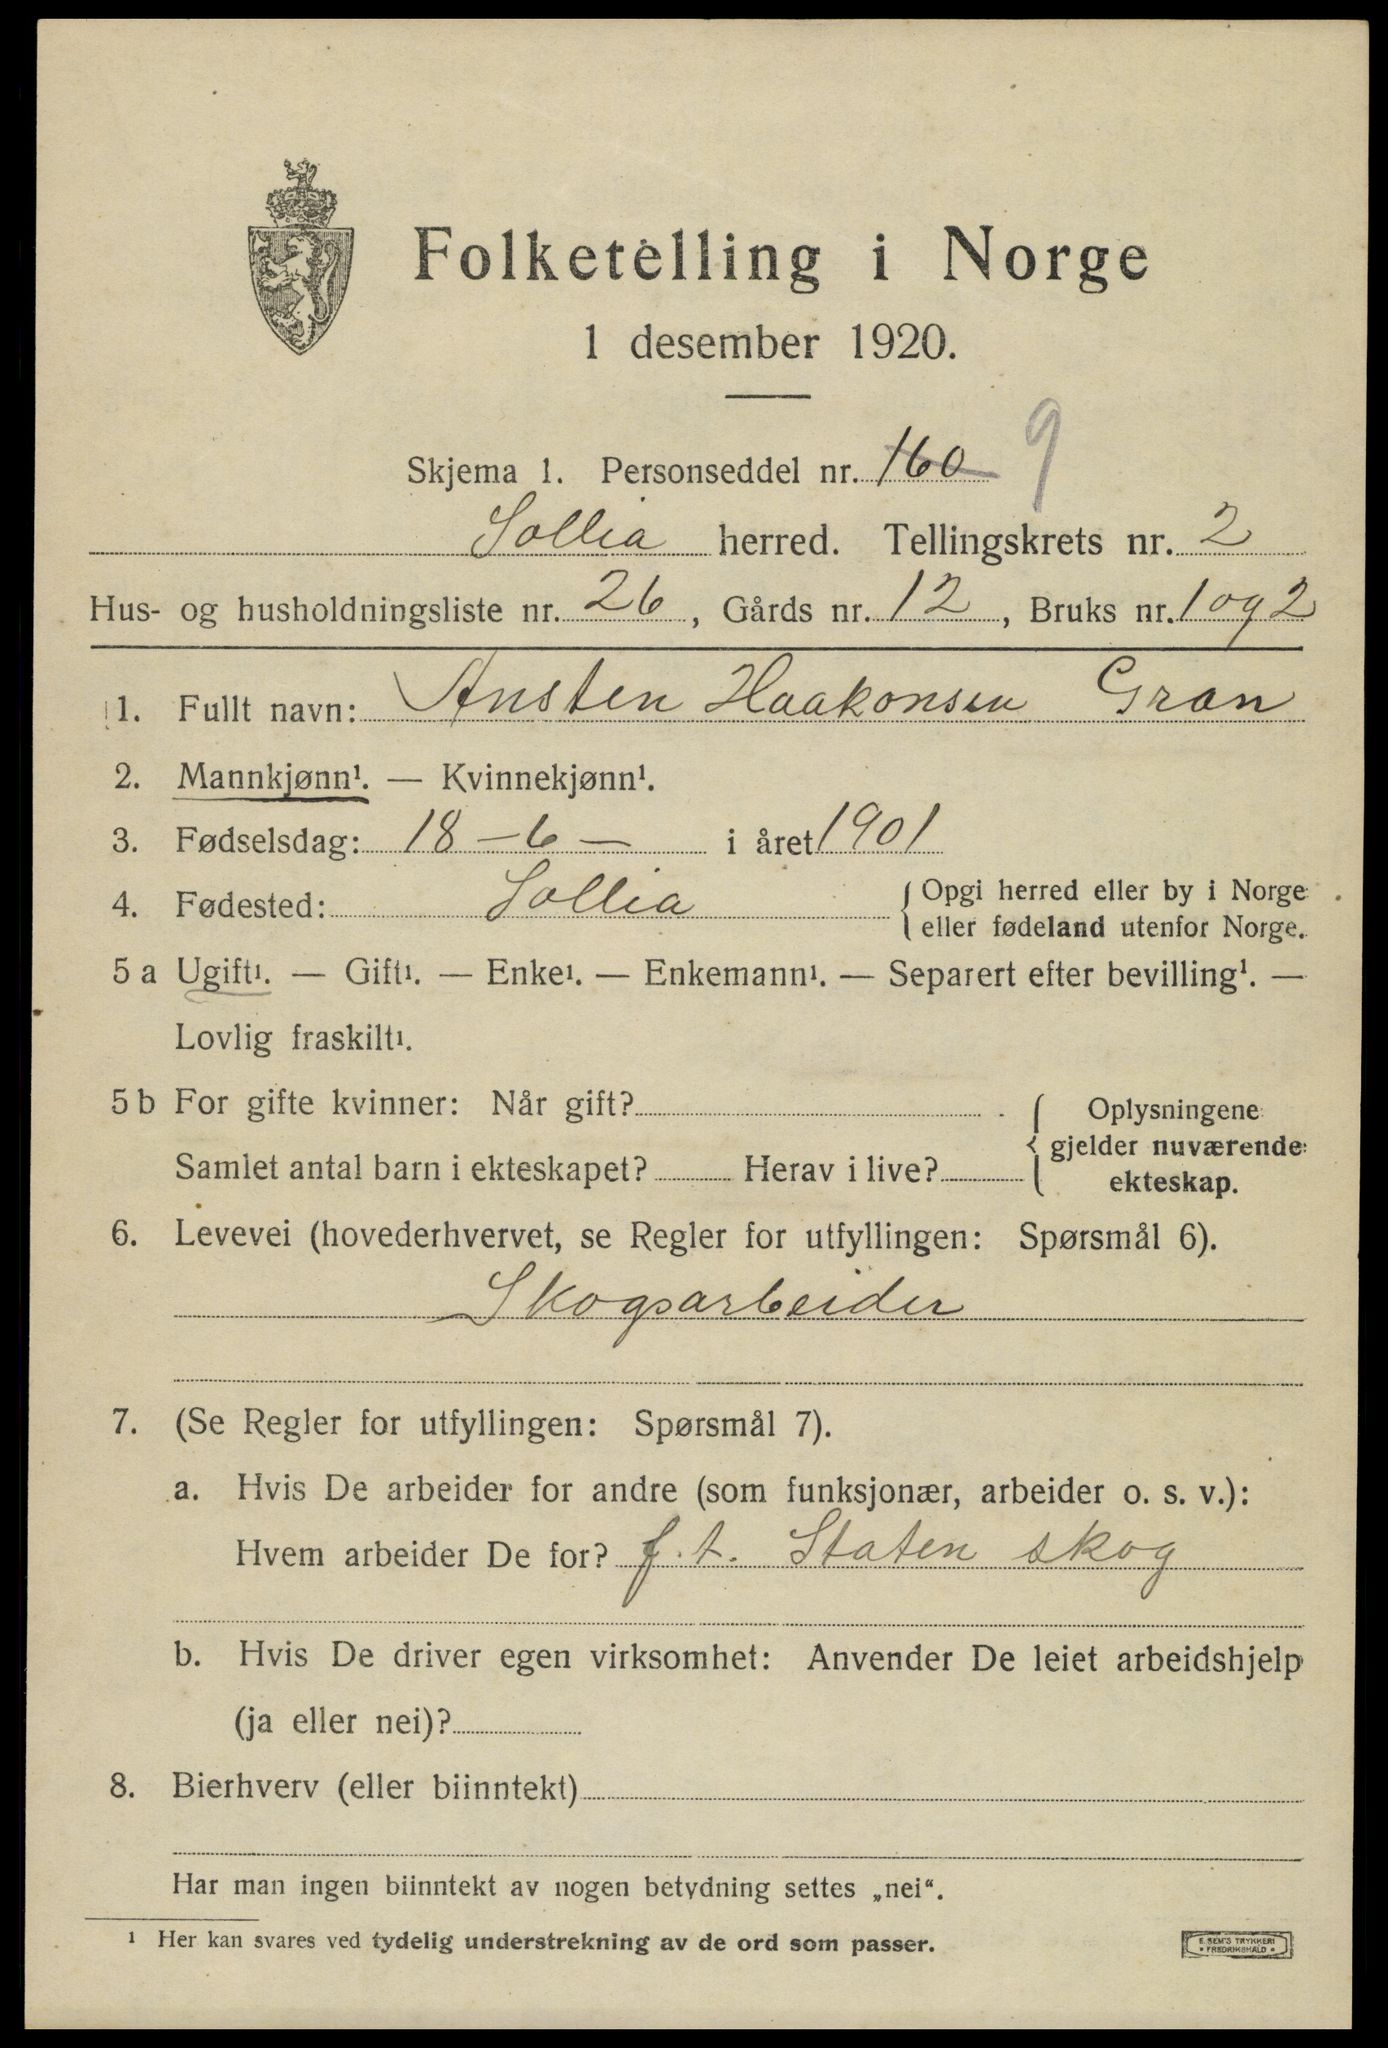 Folketelling i Norge
1 desember 1920.
Skjema 1. Personseddel nr. 160 9
Sollia herred. Tellingskrets nr. 2
Hus- og husholdningsliste nr. 26, Gårds nr. 12, Bruks nr. 1 og 2
1. Fullt navn: Ansten Haakonsen Gran
2. Mannkjønn¹. — Kvinnekjønn¹.
3. Fødselsdag: 18 – 6 – i året 1901
4. Fødested: Sollia { Opgi herred eller by i Norge
eller fødeland utenfor Norge.
5 a Ugift¹. — Gift¹. — Enke¹. — Enkemann¹. — Separert efter bevilling¹. —
Lovlig fraskilt¹.
5 b For gifte kvinner: Når gift? { Oplysningene
gjelder nuværende
Samlet antal barn i ekteskapet? Herav i live? ekteskap.
6. Levevei (hovederhvervet, se Regler for utfyllingen: Spørsmål 6).
Skogsarbeider
7. (Se Regler for utfyllingen: Spørsmål 7).
a. Hvis De arbeider for andre (som funksjonær, arbeider o. s. v.):
Hvem arbeider De for? f. t. Staten skog
b. Hvis De driver egen virksomhet: Anvender De leiet arbeidshjelp
(ja eller nei)?
8. Bierhverv (eller biinntekt)
Har man ingen biinntekt av nogen betydning settes „nei“.
¹ Her kan svares ved tydelig understrekning av de ord som passer.
E. SEM'S TRYKKERI
• FREDRIKSHALD •